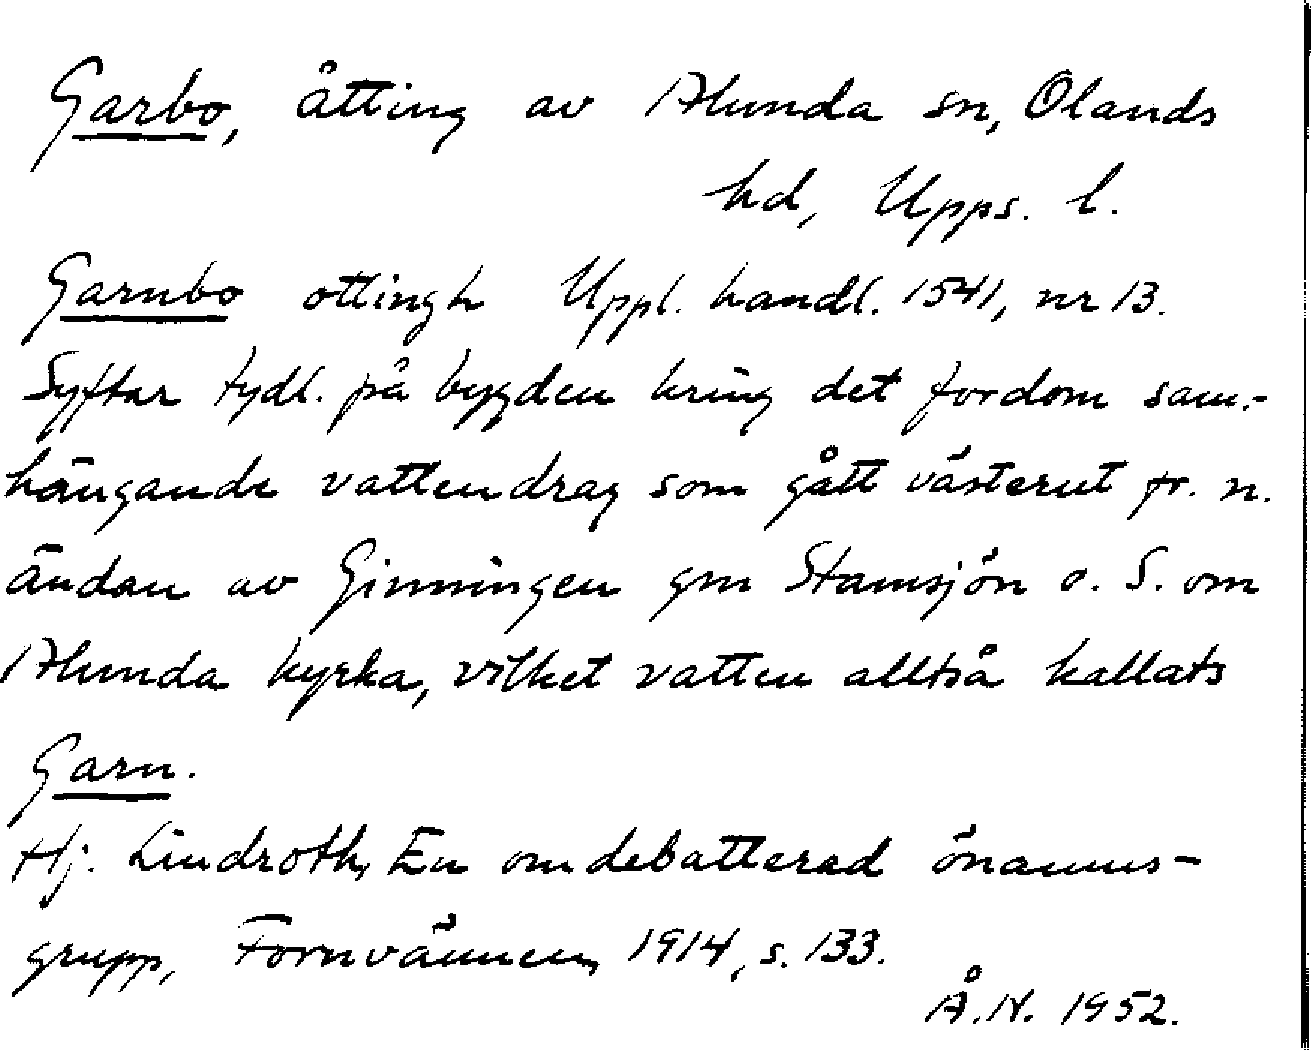 Garbo, åtting av Alunda sn, Olands
hd, Upps. l.
Garnbo ottingh Uppl. handl. 1541, nr 13.
Syftar tydl. på bygden kring det fordom sam-
hängande vattendrag som gått västerut fr. n.
ändan av Ginningen gm Stamsjön o. S. om
Alunda kyrka, vilket vatten alltså kallats
Garn.
Hj. Lindroth, En omdebatterad önamns-
grupp, Fornvännen, 1914, s. 133.
Å.N. 1952.